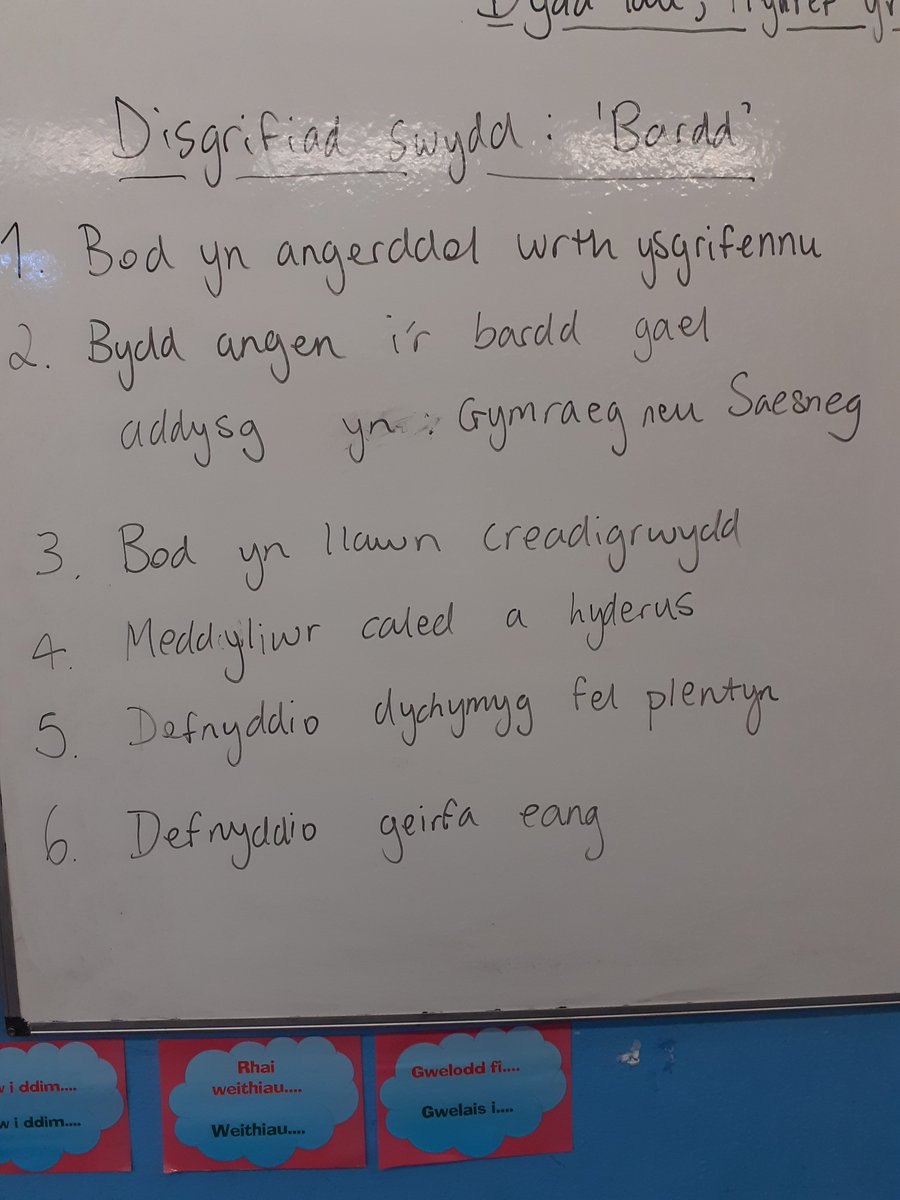 Dydd Iau,
Disgrifiad swydd : 'Bardd'
1. Bod yn angerddol wrth ysgrifennu
2. Bydd angen i'r bardd gael
addysg yn : Gymraeg neu Saesneg
3. Bod yn llawn creadigrwydd
4. Meddyliwr caled a hyderus
5. Defnyddio dychymyg fel plentyn
6. Defnyddio geirfa eang
i ddim....
i ddim....
Rhai
weithiau....
Weithiau....
Gwelodd fi....
Gwelais i....